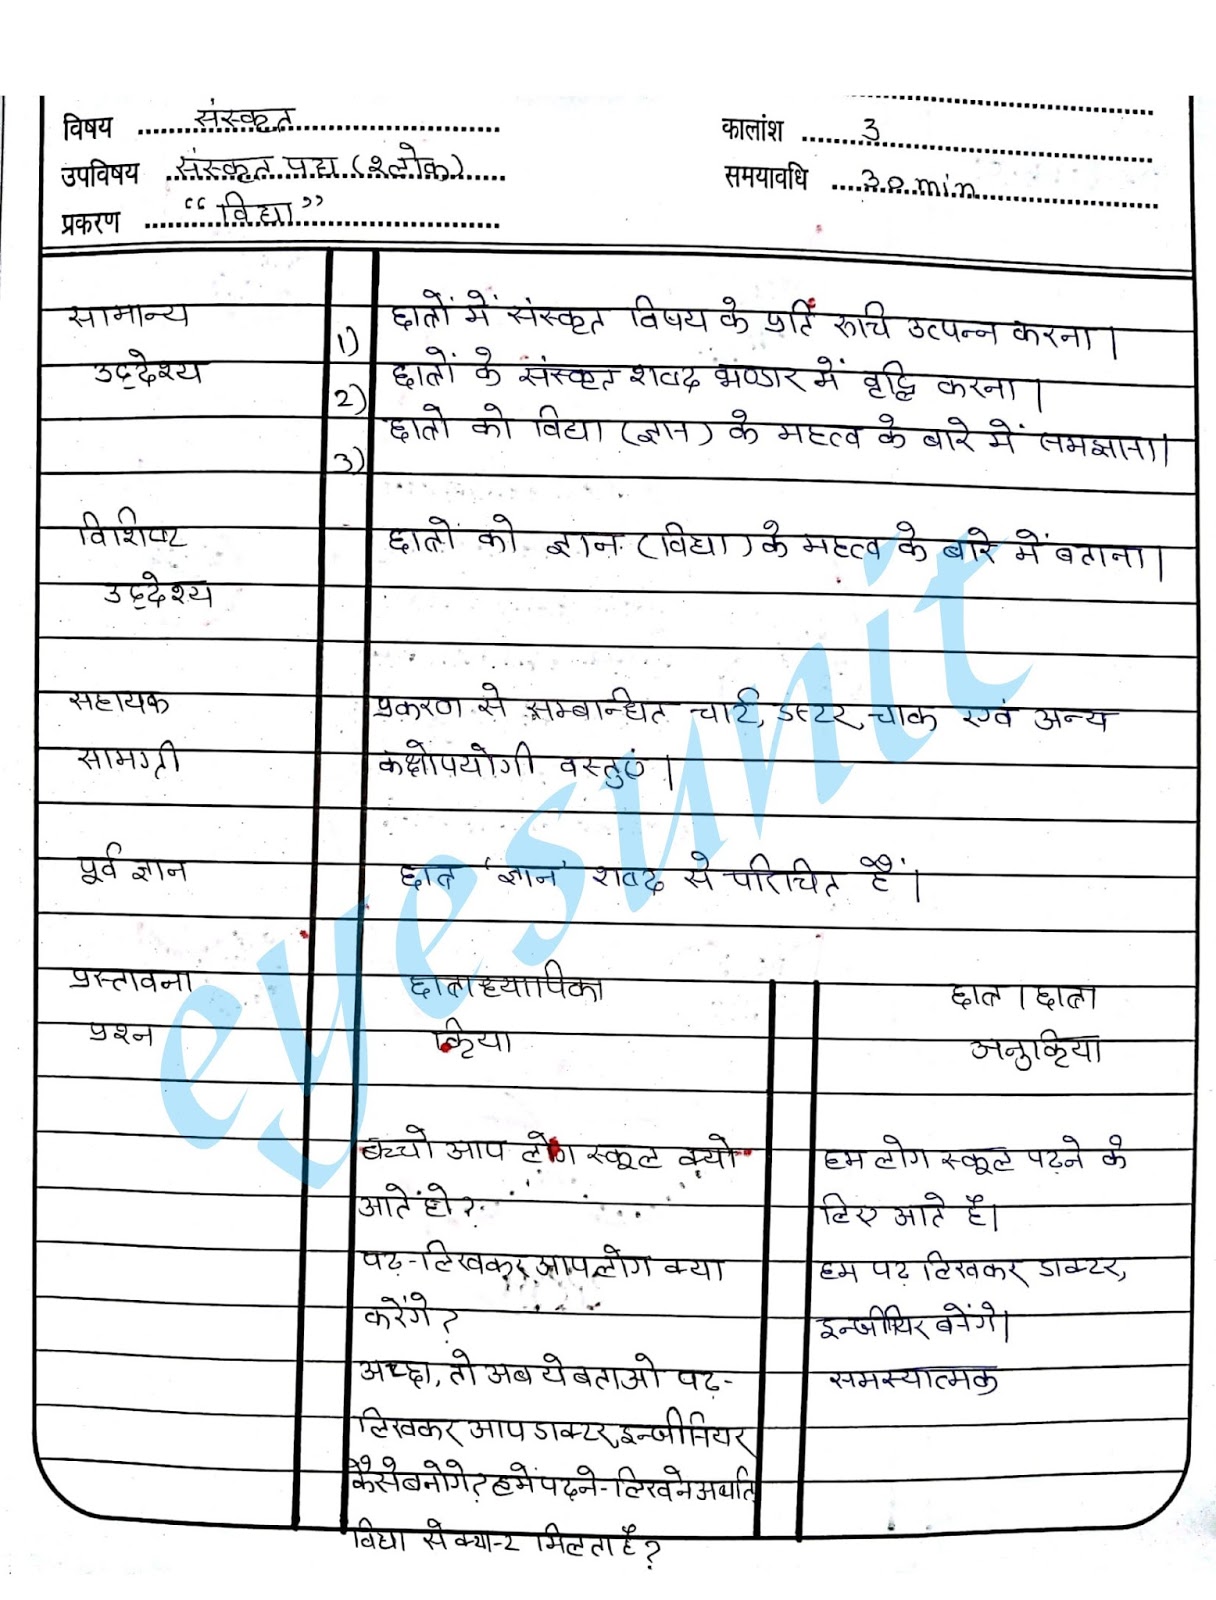 विषय संस्कृत
कालांश 3
उपविषय संस्कृत पद्य (श्लोक)
समयावधि 30 min
प्रकरण “विद्या”
सामान्य उद्देश्य
1) छात्रों में संस्कृत विषय के प्रति रूचि उत्पन्न करना।
2) छात्रों के संस्कृत शब्द भण्डार में वृद्धि करना।
3) छात्रो को विद्या (ज्ञान) के महत्व के बारे में समझाना।
विशिष्ट छात्रों को ज्ञान (विद्या) के महत्व के बारे में बताना।
उद्देश्य
सहायक प्रकरण से सम्बान्धित चार्ट, डस्टर, चाक एवं अन्य
सामग्री कक्षोपयोगी वस्तुएं।
पूर्व ज्ञान छात्र 'ज्ञान' शब्द से परिचित हैं।
प्रस्तावना छात्राध्यापिका छात्र।छात्रा
प्रश्न क्रिया अनुक्रिया
बच्चो आप लोग स्कूल क्यो
आते हो?
हम लोग स्कूल पढ़ने के
लिए आते है।
पढ़-लिखकर आप लोग क्या
करेंगे?
हम पढ़ लिखकर डाक्टर,
इन्जीनियर बनेंगे।
अच्छा, तो अब ये बताओ पढ़-
लिखकर आप डाक्टर, इन्जीनियर
कैसे बनोगे? हमें पढ़ने-लिखने अर्थात
विद्या से क्या-2 मिलता है?
समस्यात्मक
eyesunit